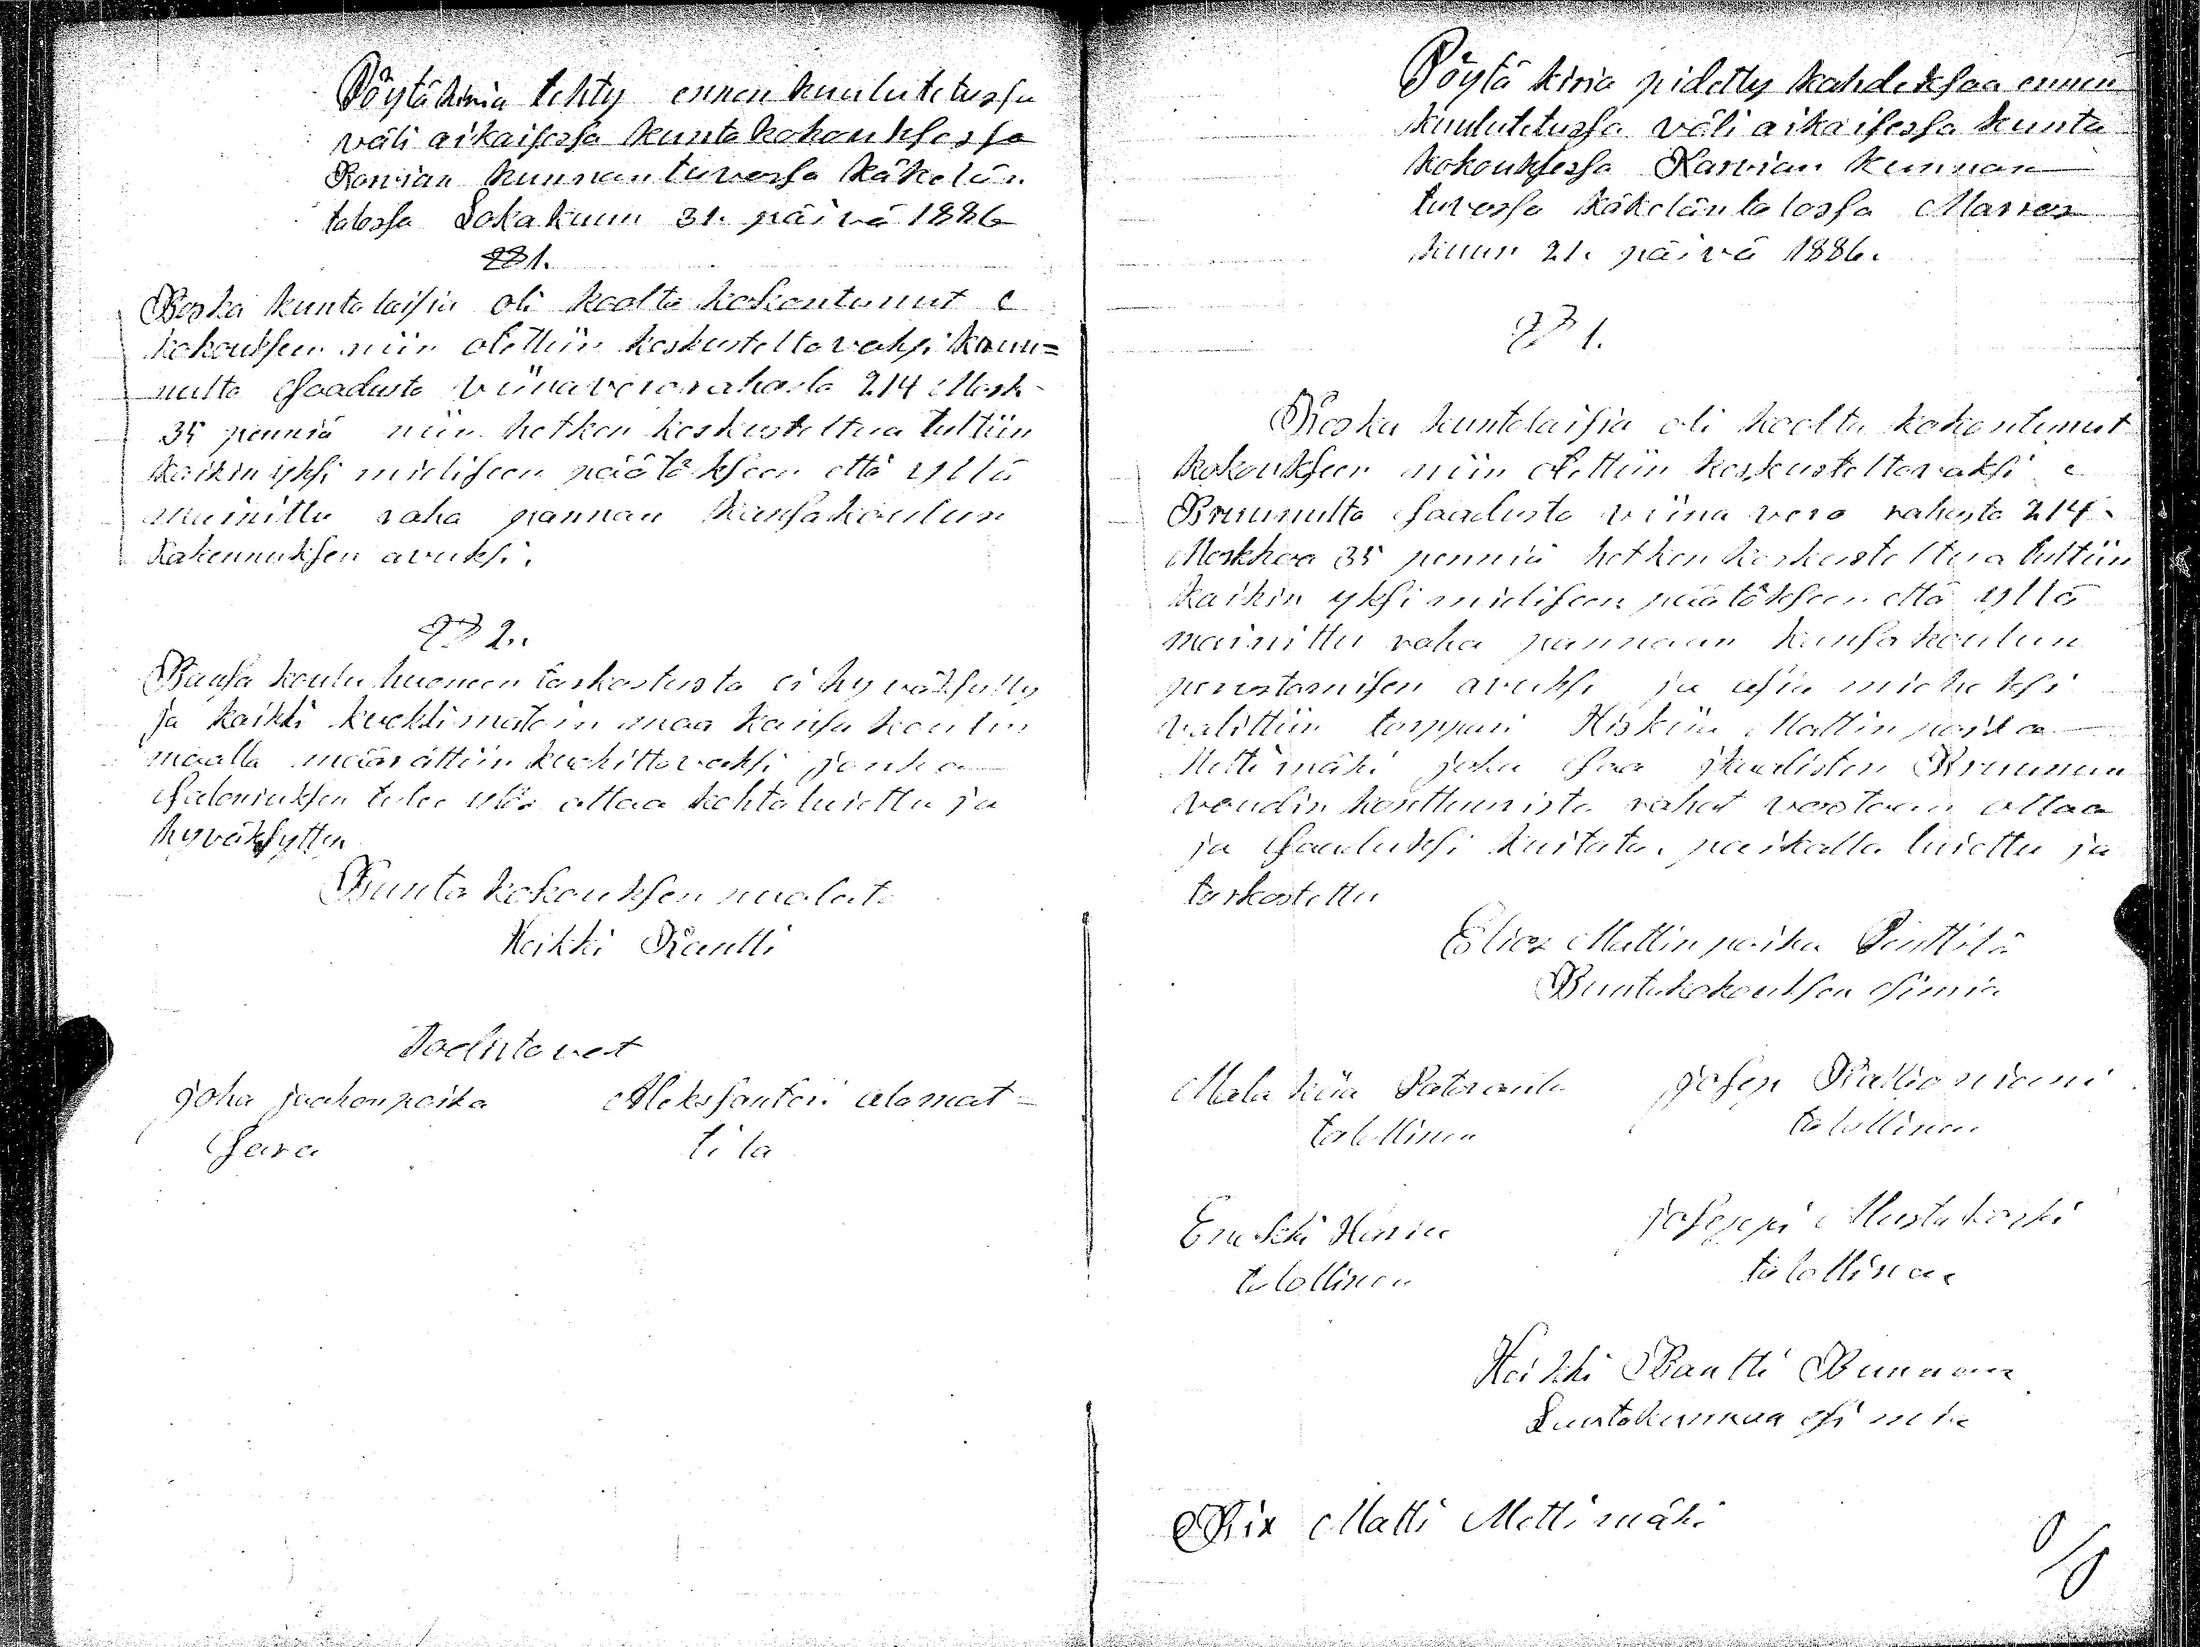 Pöytäkiria tehty ennen kuulutetussa
väli aikaisessa kuntakokouksessa
Karvian kunnantuvassa Käkelän
talossa Lokakuun 31. päivä 1886
§ 1.
Koska kuntalaisia oli koolta kokoontunut
kokoukseen niin otettiin keskusteltavaksi kruu=
nulta saadusta viinaverorahasta 214 Mark
35 penniä niin hetken keskusteltua tultiin
kaikin yksi mieliseen päätökseen että yllä
mainittu raha pannan kansakoulun
Rakennuksen avuksi.
§ 2.
Kansa koulu huoneen tarkastusta ei hyväksytty
ja kaikki kuokkimatoin maa kansa koulun
maalla määrättiin kuokittavaksi jonka
Saloniuksen tulee ylös ottaa kohta luettu ja
hyväksytty
Kunta kokouksen puolesta
Heikki Kantti
Todistavat
joha jaakonpoika Aleksanteri alamat=
Sara tila
Pöytä kiria pidetty kahdeksaa ennen
kuulutetussa väli aikaisessa kunta
kokouksessa Karvian kunnan
tuvassa Käkeläntalossa Marras
kuun 21. päivä 1886.
§ 1.
Koska kuntalaisia oli koolta kokontunut
kokoukseen niin otettiin keskusteltavaksi
Kruunulta saadusta viina vero rahasta 214
Markkaa 35 penniä hetken keskusteltua tultiin
kaikin yksi mieliseen päätökseen että yllä
mainittu raha pannaan kansakoulun
perustamisen avuksi ja asia mieheksi
valittiin torppari Hiskia Matinpoika
Mettimäki joka saa Ikaalisten Kruunun
voudin konttuurista rahat vastaan ottaa
ja saaduksi kuitata. paikalla luettu ja
tarkastettu
Elias Matinpoika Penttilä
Kuntakokouksen esimies
Malakia Sateranta josep Kallioniemi
talollinen talollinen
Enokki Harju joseppi Mustakoski
talollinen talollinen
Heikki Kantti Kunnan
Lautakunnan esimies
Rix Matti Mettimäki